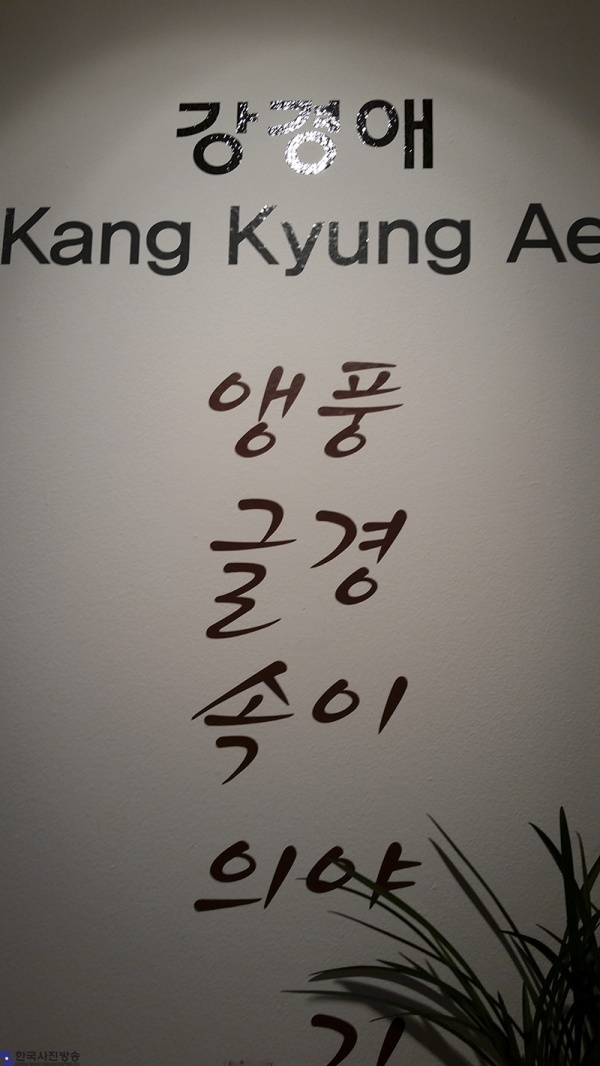 강경애
Kang Kyung Ae
앵글속의
풍경이야기
한국사진방송